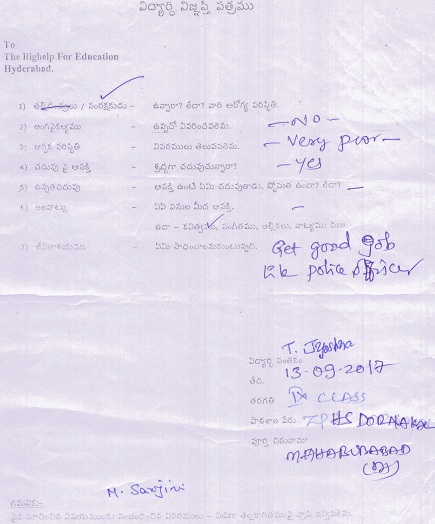 విద్యార్థి విజ్ఞప్తి పత్రము
To
The Bighelp For Education
Hyderabad.
1) తల్లిదండ్రులు / సంరక్షకుడు - ఉన్నారా? లేదా? వారి ఆరోగ్య పరిస్థితి.
2) అంగవైకల్యము - ఉన్నచో వివరించవలెను. - NO -
3) ఆర్థిక పరిస్థితి - వివరములు తెలుపవలెను. - Very poor -
4) చదువు పై ఆసక్తి - శ్రద్ధగా చదువుచున్నారా? - Yes
5) ఉన్నతచదువు - ఆసక్తి ఉంటే ఏమి చదువుతాడు, ఉందా? లేదా? -
6) అలవాట్లు - ఏఏ పనుల మీద ఆసక్తి. -
ఉదా - సంగీతము, నాట్యము
7) జీవితాశయము - ఏమి సాధించాలనుకుంటున్నది. Get good job
Lik police officer
T. Jyoshna
విద్యార్థి సంతకం
తేది. 13-09-2017
తరగతి IX CLASS
పాఠశాల పేరు ZPHS DORNAKAL
పూర్తి చిరునామా MAHABUBABAD
M. Sarojini
గమనిక:-